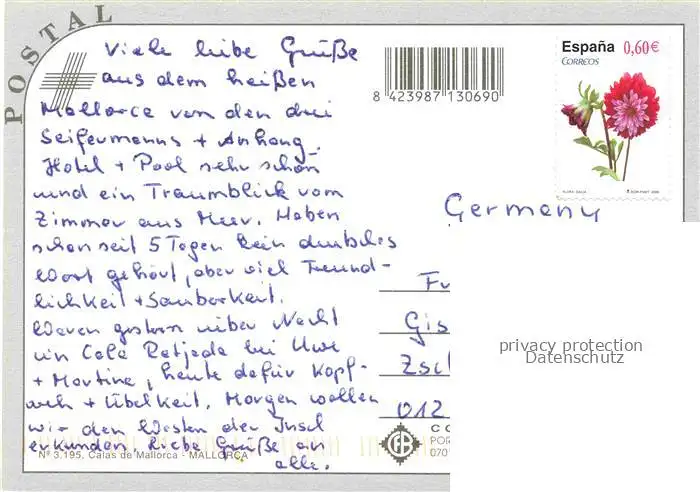 POSTAL
Viele liebe Grüße
aus dem heißen
Mallorca von den drei
Seifermanns + Anhang.
Hotel + Pool sehr schön
und ein Traumblick vom
Zimmer aus Meer. Haben
schon seit 5 Tagen kein deutsches
Wort gehört, aber viel Freund-
lichkeit + Sauberkeit.
Waren gestern über Nacht
in Cala Ratjada bei Uwe
+ Martina, heute dafür Kopf-
weh + Übelkeit. Morgen wollen
wir den Westen der Insel
erkunden. Liebe Grüße an
alle.
Nº 3.195. Calas de Mallorca - MALLORCA
8 423987 130690
España 0,60€
CORREOS
FLORA. DALIA
Germany
Fr
Gis
Zscl
012
privacy protection
Datenschutz
CO
POR
070